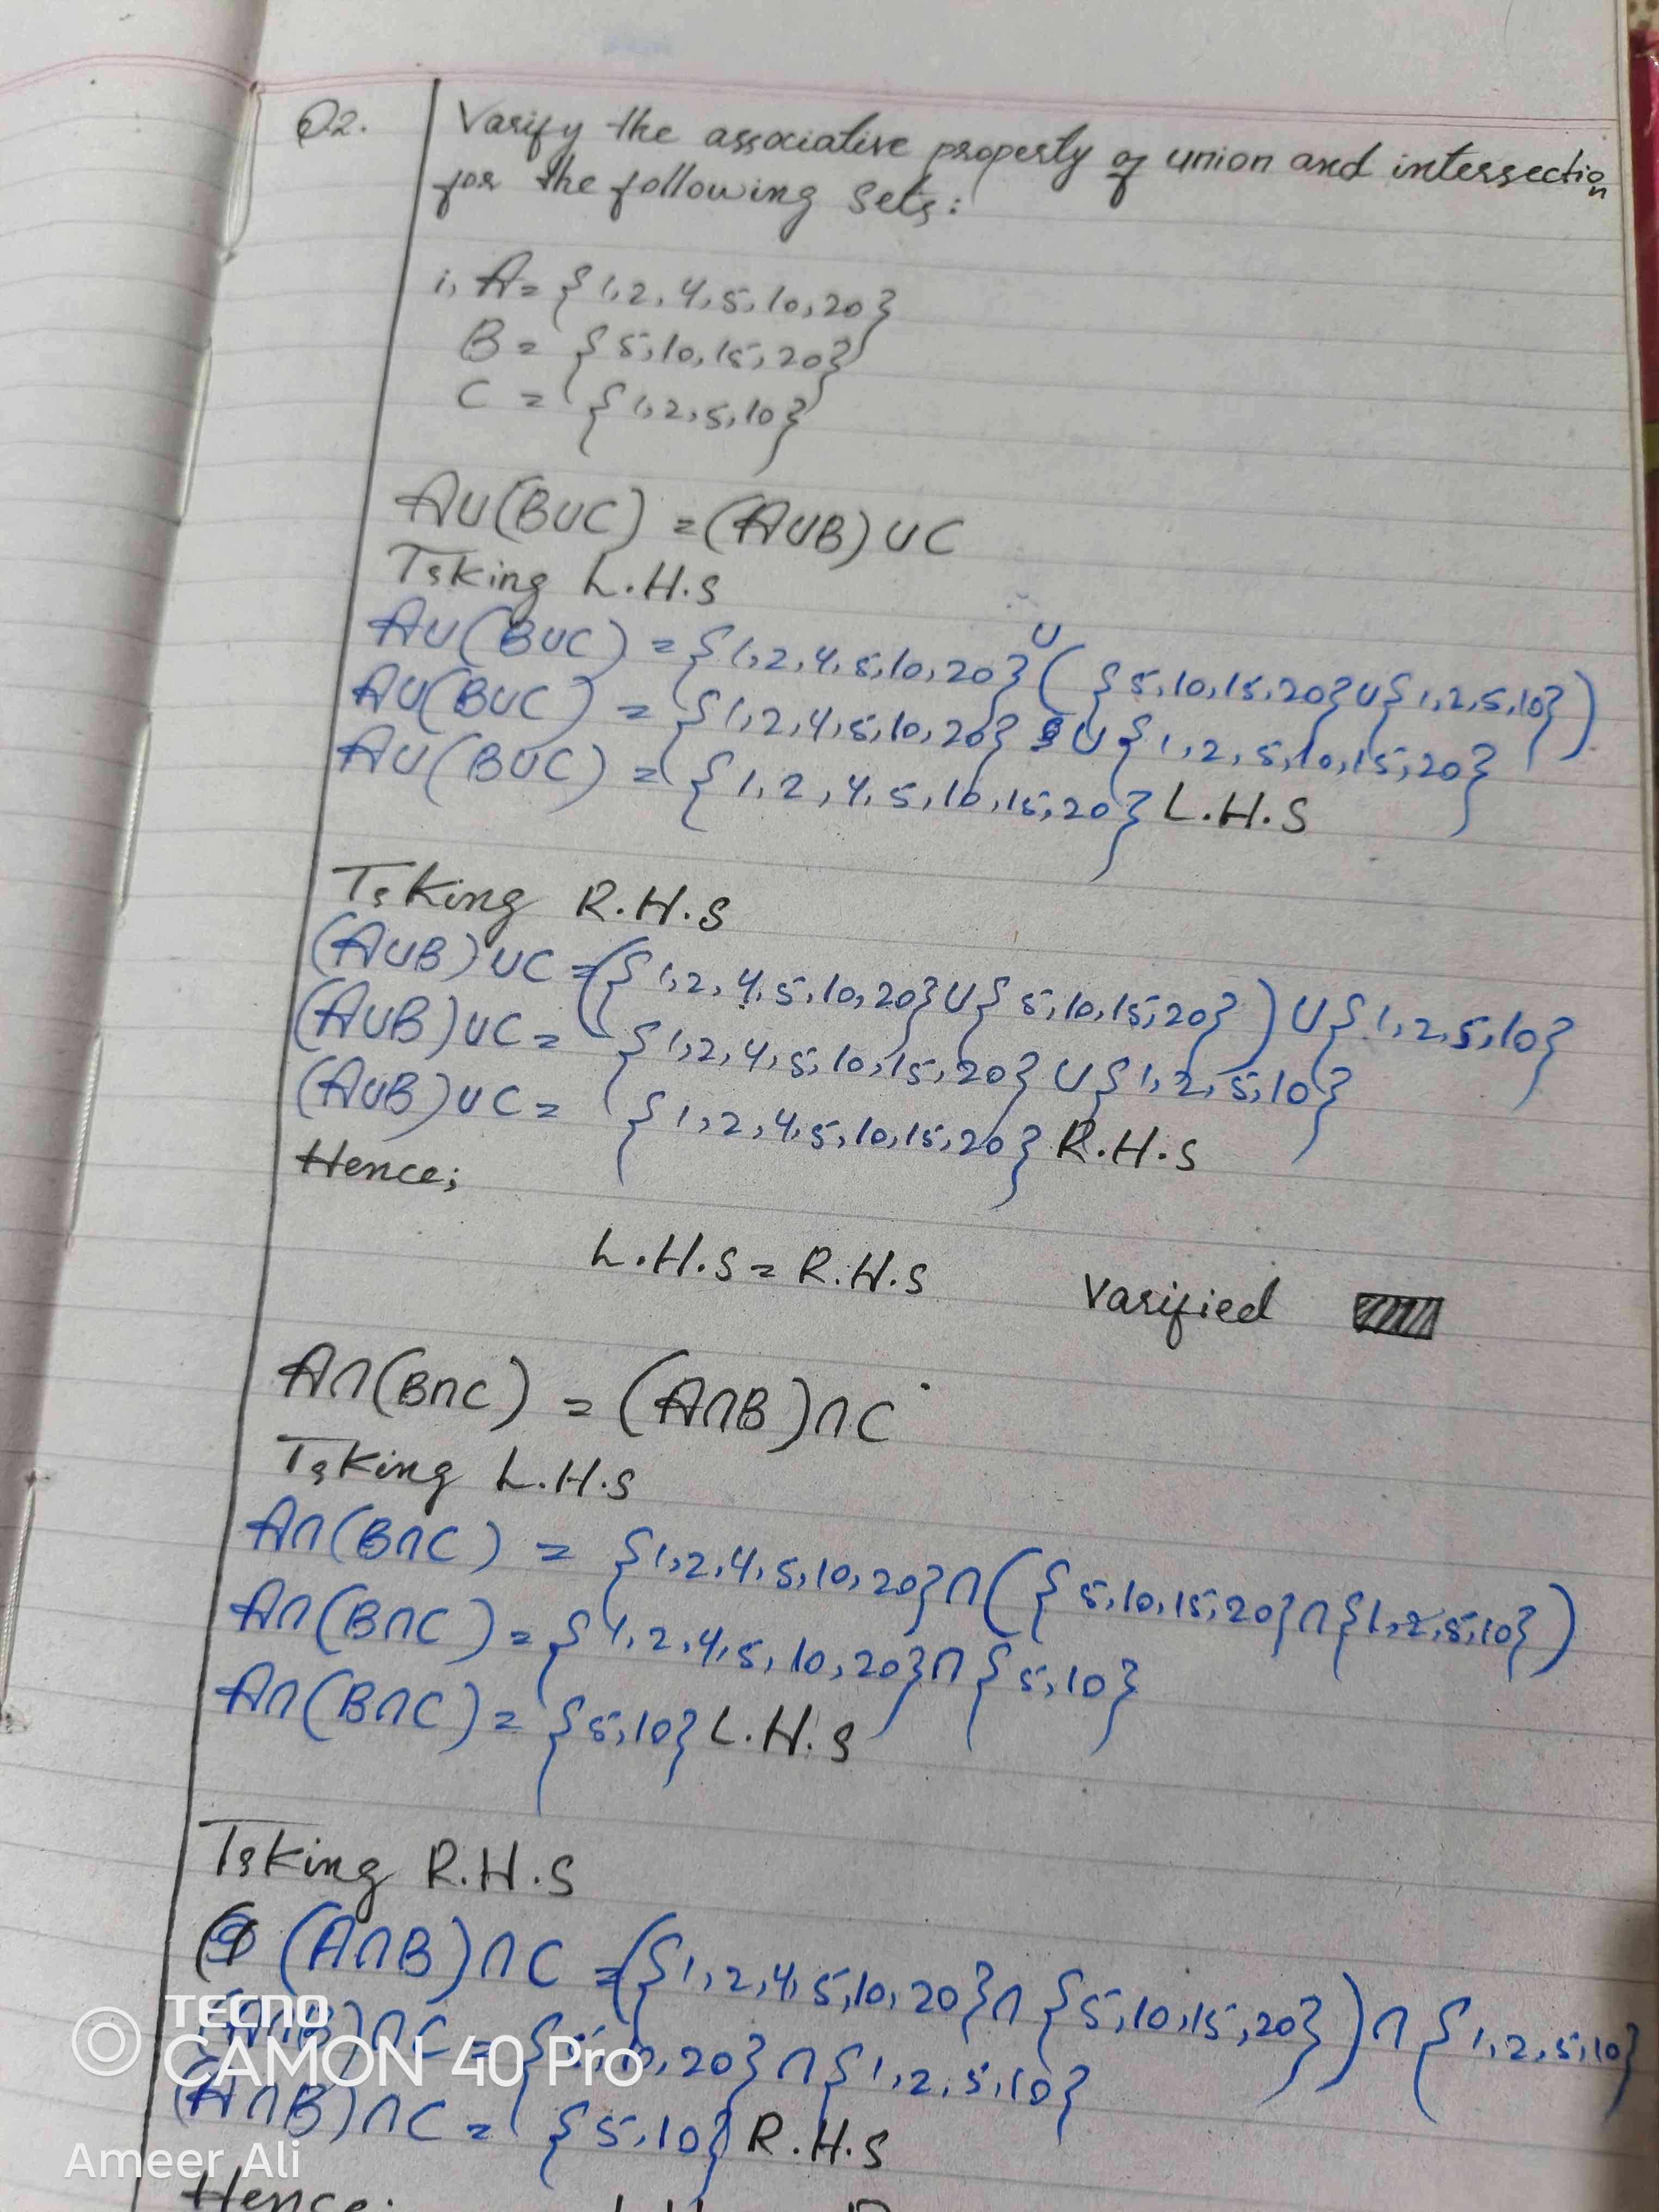 Q2. Varify the associative property of union and intersection
for the following sets:
i, A = {1,2,4,5,10,20}
B = {5,10,15,20}
C = {1,2,5,10}
A∪(B∪C) = (A∪B)∪C
Taking L.H.S
A∪(B∪C) = {1,2,4,5,10,20}∪({5,10,15,20}∪{1,2,5,10})
A∪(B∪C) = {1,2,4,5,10,20} ∪{1,2,5,10,15,20}
A∪(B∪C) = {1,2,4,5,10,15,20} L.H.S
Taking R.H.S
(A∪B)∪C = ({1,2,4,5,10,20}∪{5,10,15,20})∪{1,2,5,10}
(A∪B)∪C = {1,2,4,5,10,15,20}∪{1,2,5,10}
(A∪B)∪C = {1,2,4,5,10,15,20} R.H.S
Hence;
L.H.S = R.H.S Varified
A∩(B∩C) = (A∩B)∩C
Taking L.H.S
A∩(B∩C) = {1,2,4,5,10,20}∩({5,10,15,20}∩{1,2,5,10})
A∩(B∩C) = {1,2,4,5,10,20}∩{5,10}
A∩(B∩C) = {5,10} L.H.S
Taking R.H.S
(A∩B)∩C = ({1,2,4,5,10,20}∩{5,10,15,20})∩{1,2,5,10}
(A∩B)∩C = {5,10,20}∩{1,2,5,10}
(A∩B)∩C = {5,10} R.H.S
Hence;
TECNO
CAMON 40 Pro
Ameer Ali